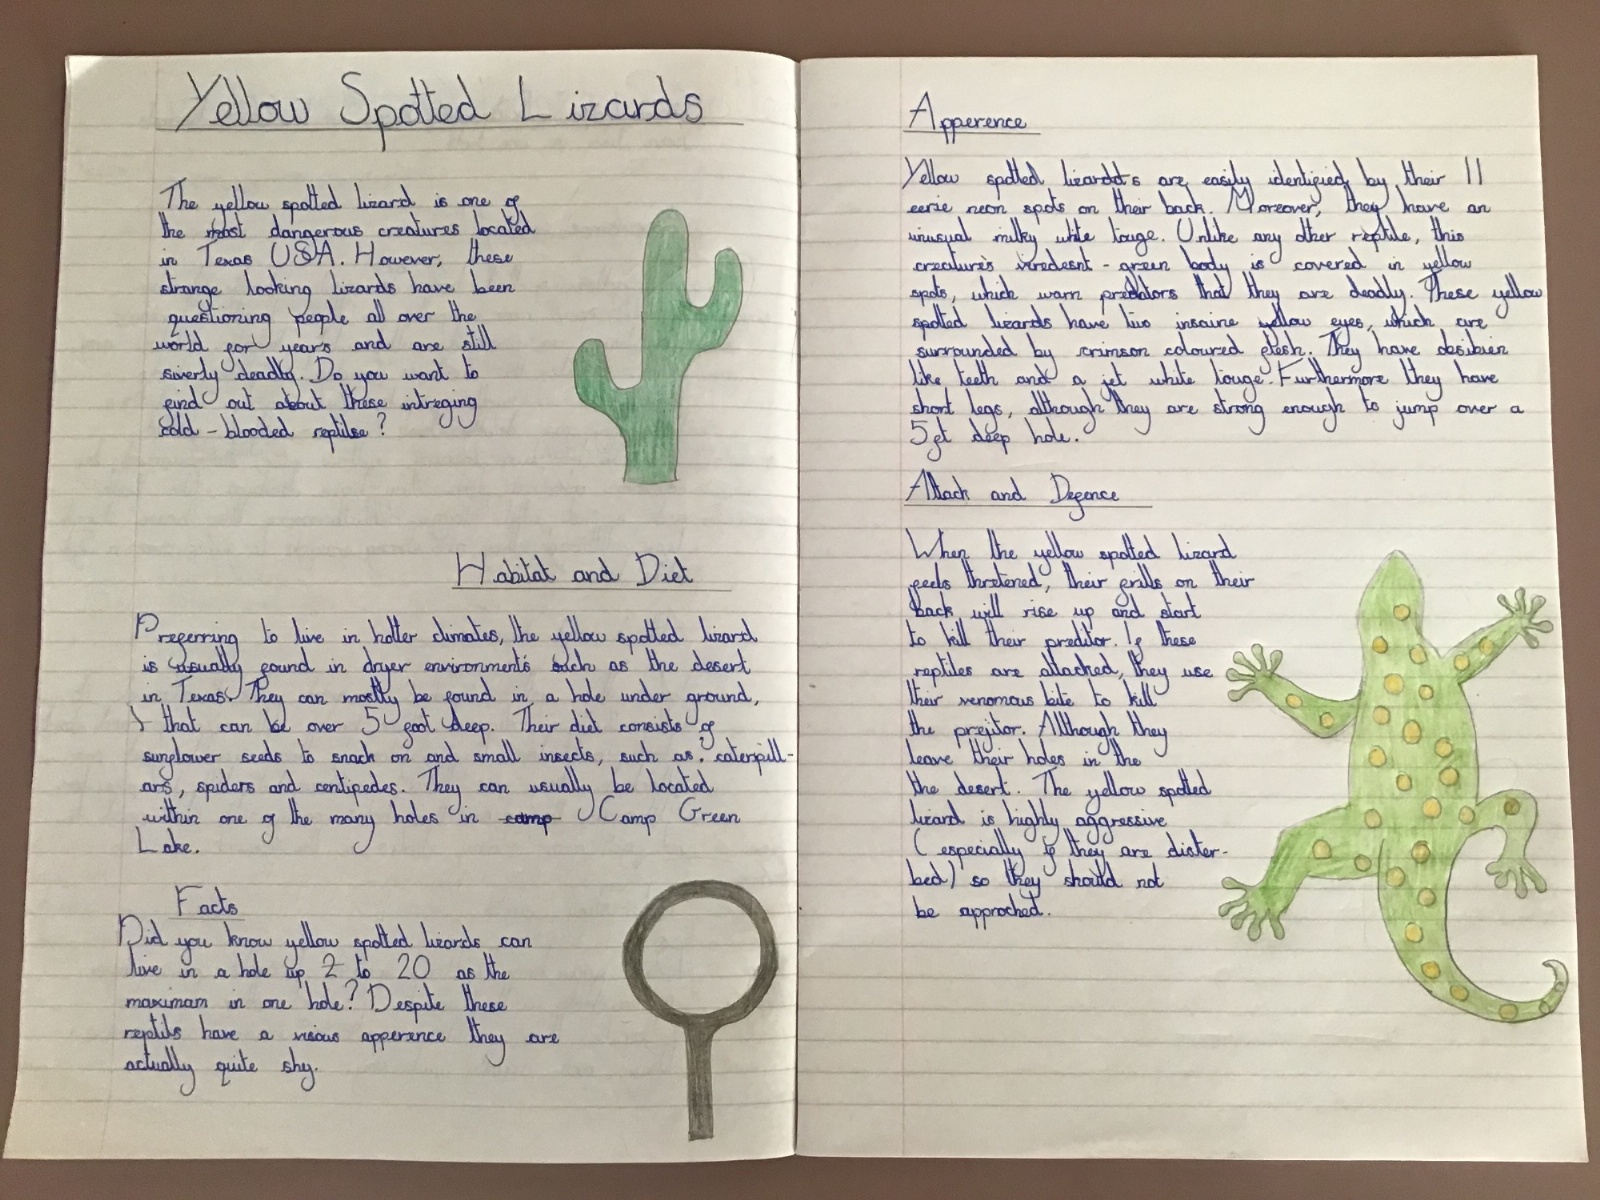 Yellow Spotted Lizards
The yellow spotted lizard is one of
the most dangerous creatures located
in Texas USA. However, these
strange looking lizards have been
questioning people all over the
world for years and are still
siverly deadly. Do you want to
find out about these intreging
cold-blooded reptilse?
Habitat and Diet
Preferring to live in hotter climates, the yellow spotted lizard
is usually found in dryer environments such as the desert
in Texas. They can mostly be found in a hole under ground,
that can be over 5 foot deep. Their diet consists of
sunflower seeds to snack on and small insects, such as: caterpill-
ars, spiders and centipedes. They can usually be located
within one of the many holes in camp Camp Green
Lake.
Facts
Did you know yellow spotted lizards can
live in a hole up 2 to 20 as the
maximam in one hole? Despite these
reptils have a visious apperence they are
actually quite shy.
Apperence
Yellow spotted lizardd's are easily identified by their 11
eerie neon spots on their back. Moreover, they have an
unusual milky white touge. Unlike any other reptile, this
creature's viredesnt-green body is covered in yellow
spots, which warn predators that they are deadly. These yellow
spotted lizards have two insaine yellow eyes, which are
surrounded by crimson coloured flesh. They have obsibien
like teeth and a jet white touge. Furthermore they have
short legs, although they are strong enough to jump over a
5ft deep hole.
Attack and Defence
When the yellow spotted lizard
feels thretened, their frills on their
back will rise up and start
to kill their preditor. If these
reptiles are attached, they use
their venomous bite to kill
the prejitor. Allthough they
leave their holes in the
the desert. The yellow spotted
lizard is highly aggressive
(especially if they are dister-
bed) so they should not
be approched.